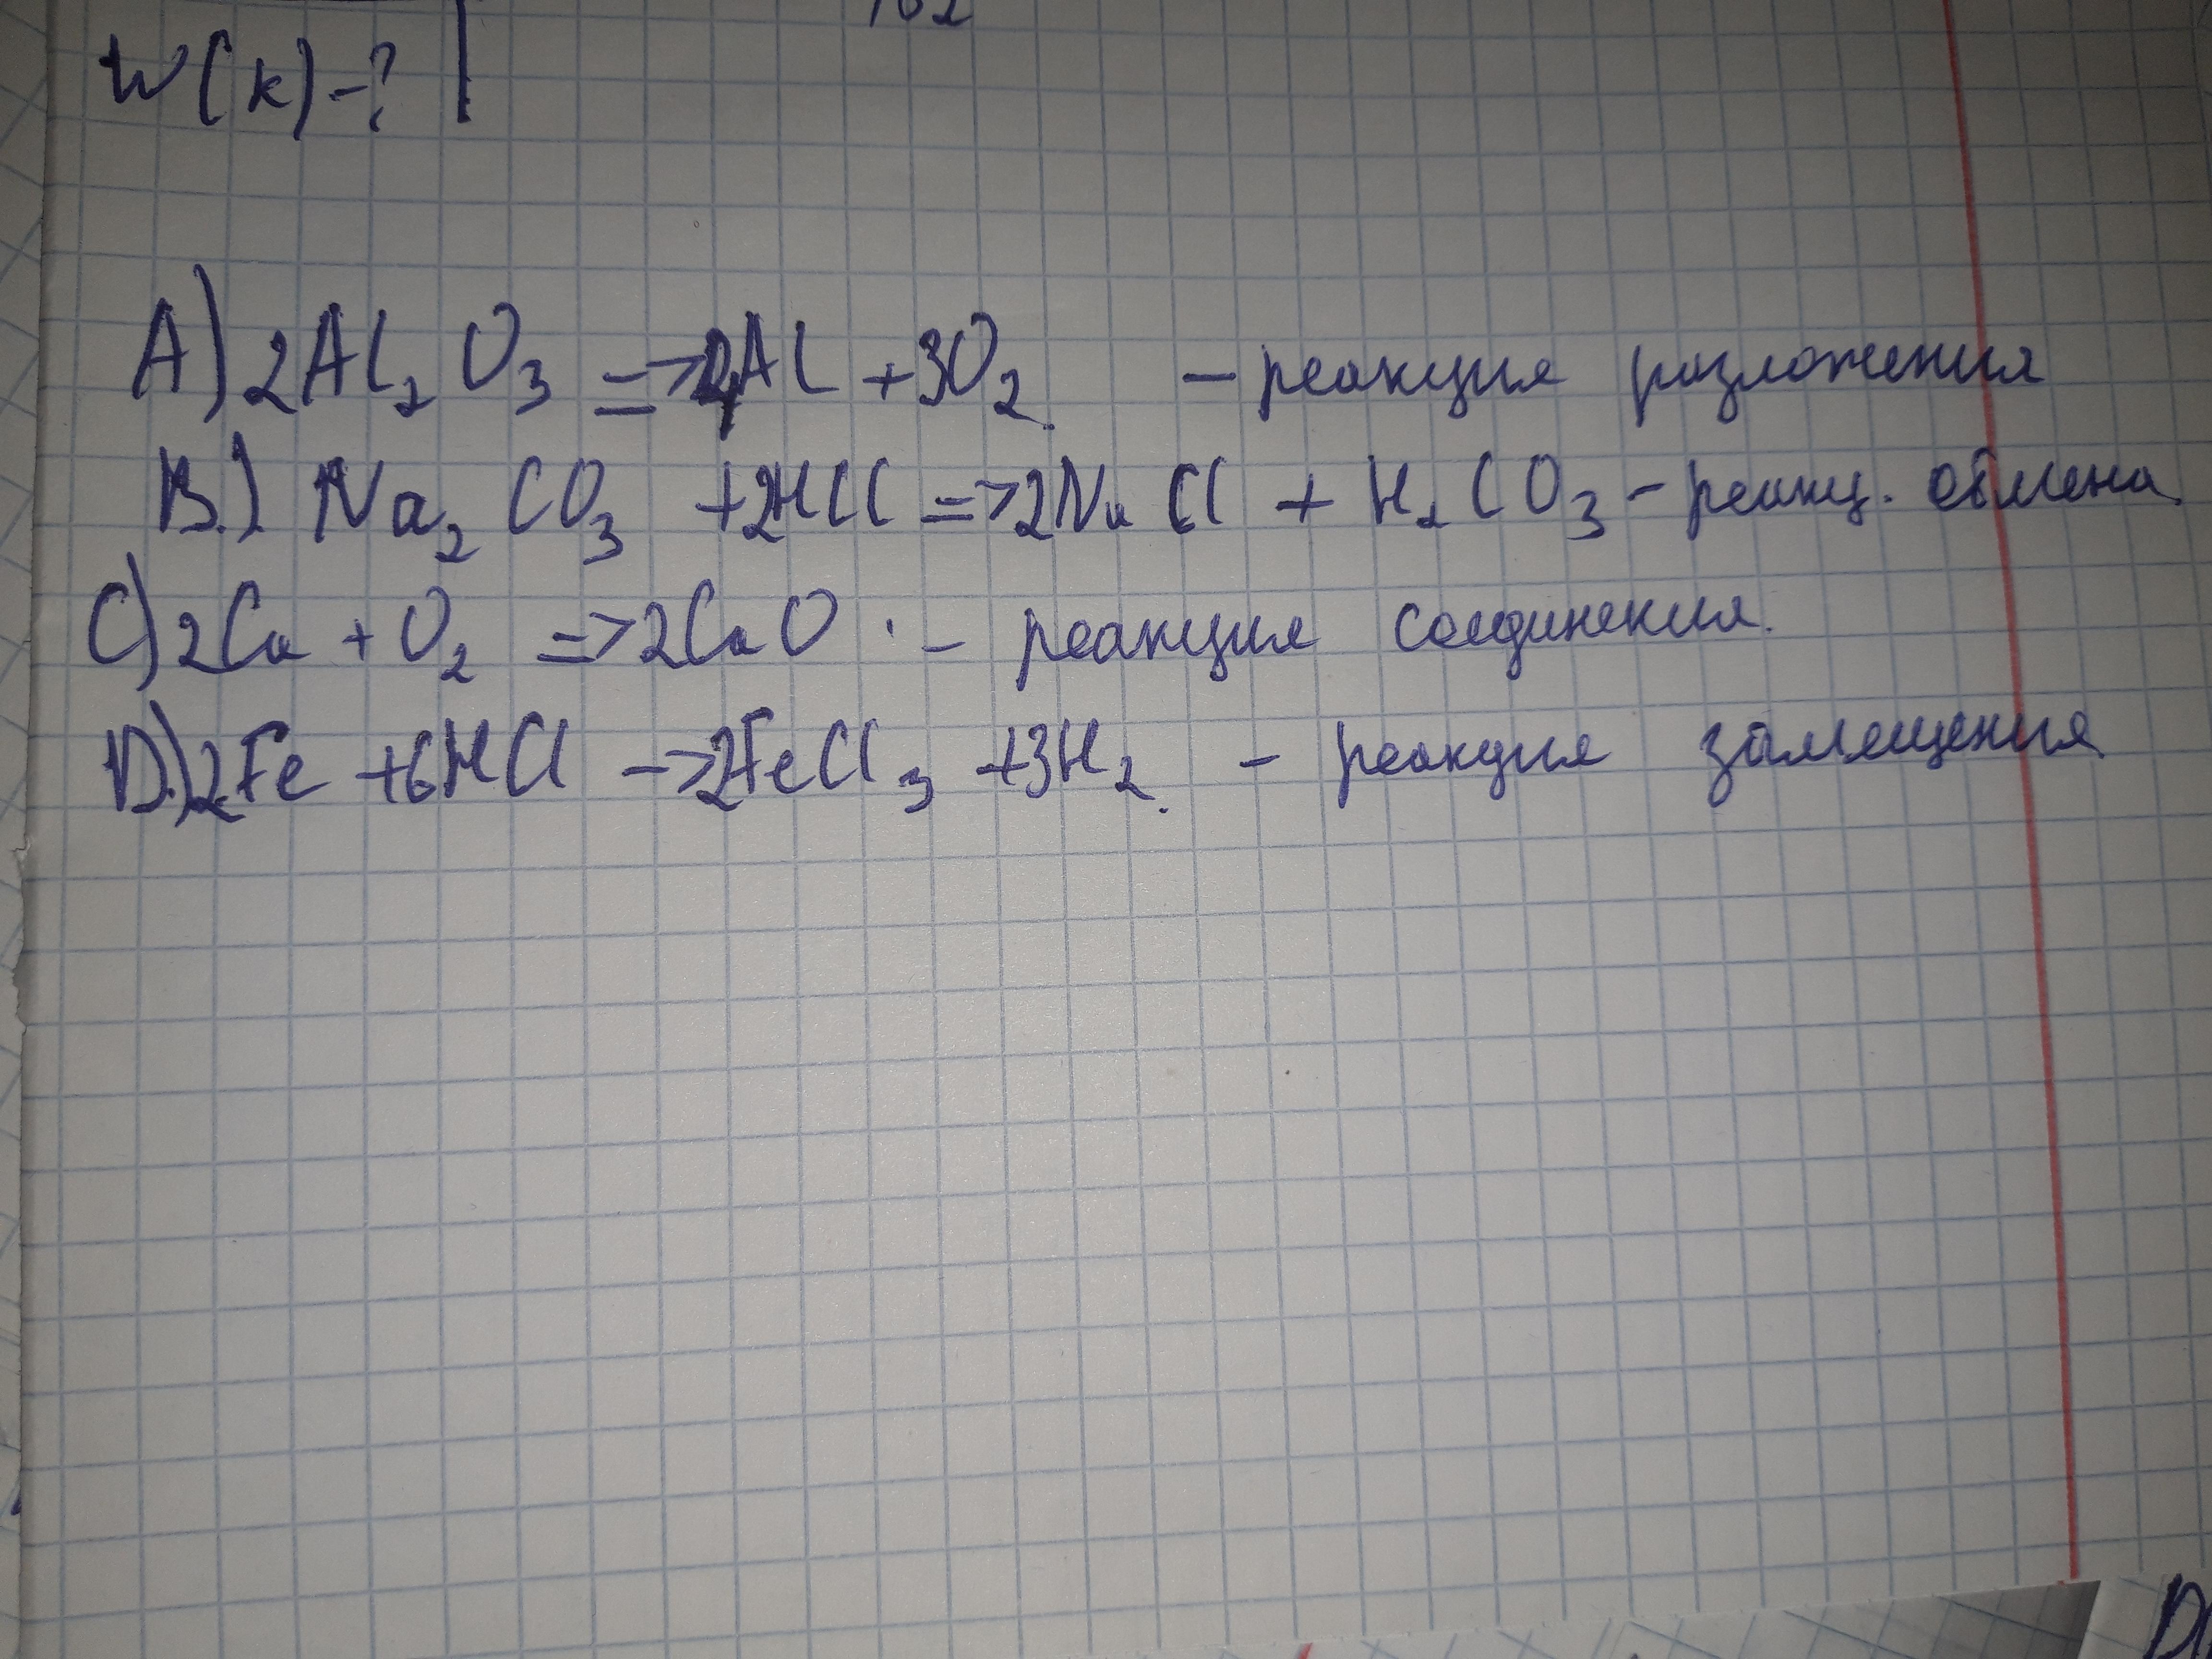 162
W(k)-?
A) 2Al₂O₃ => 4Al + 3O₂ - реакция разложения
B.) Na₂CO₃ + 2HCl => 2NaCl + H₂CO₃ - реакц. обмена.
C) 2Ca + O₂ => 2CaO - реакция соединения.
D.) 2Fe + 6HCl -> 2FeCl₃ + 3H₂. - реакция замещения